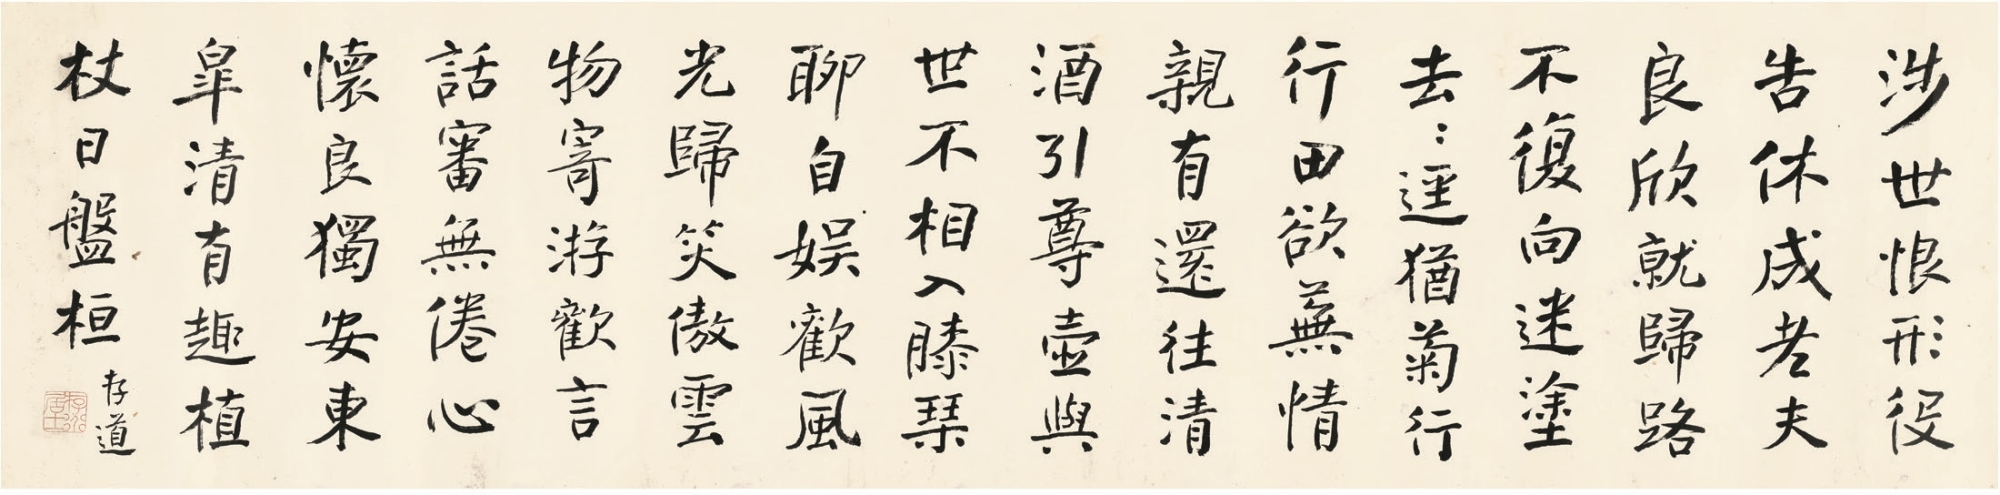 涉世恨形役
告休成老夫
良欣就歸路
不復向迷塗
去〻逕猶菊行
行田欲蕪情
親有還往清
酒引尊壺與
世不相入膝琴
聊自娱歡風
光歸笑傲雲
物寄游歡言
話審無倦心
懷良獨安東
皐清有趣植
杖日盤桓
存道